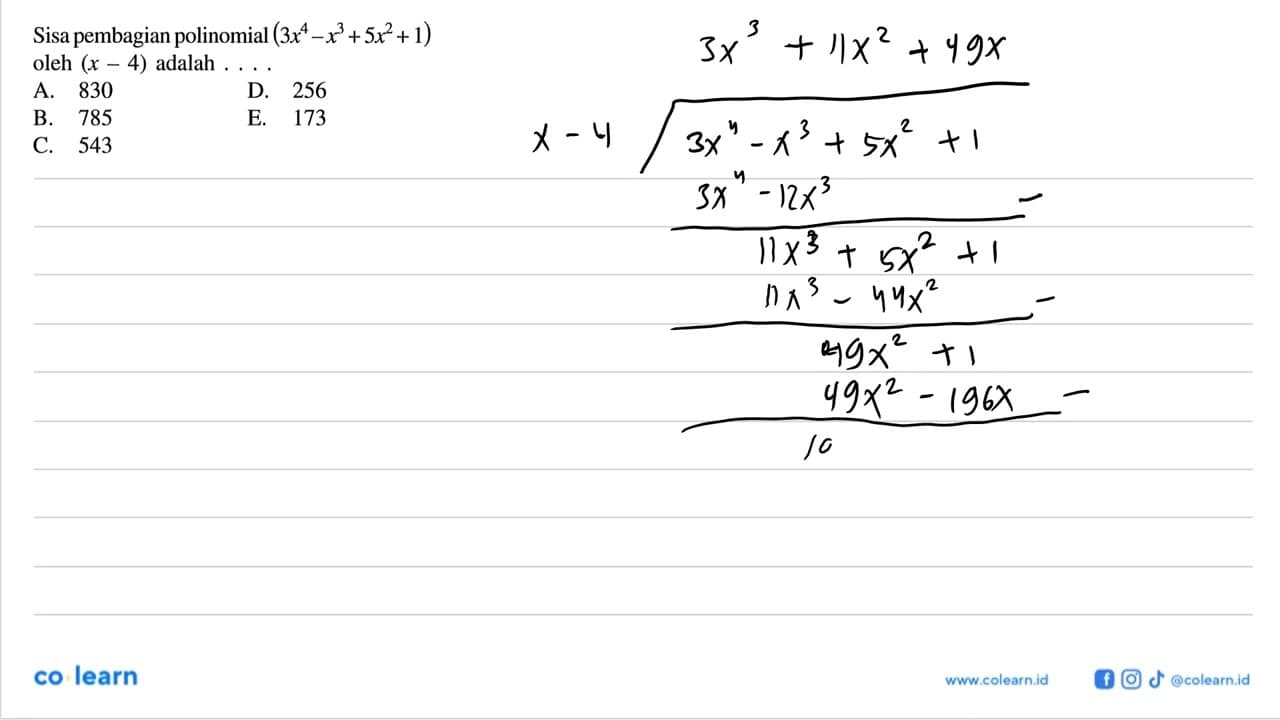 Sisa pembagian polinomial (3x⁴ – x³ + 5x² + 1)
oleh (x – 4) adalah . . . .
A. 830 D. 256
B. 785 E. 173
C. 543
3x³ + 11x² + 49x
x - 4 3x⁴ - x³ + 5x² + 1
3x⁴ - 12x³ -
11x³ + 5x² + 1
11x³ - 44x² -
49x² + 1
49x² - 196x -
10
co learn
www.colearn.id @colearn.id